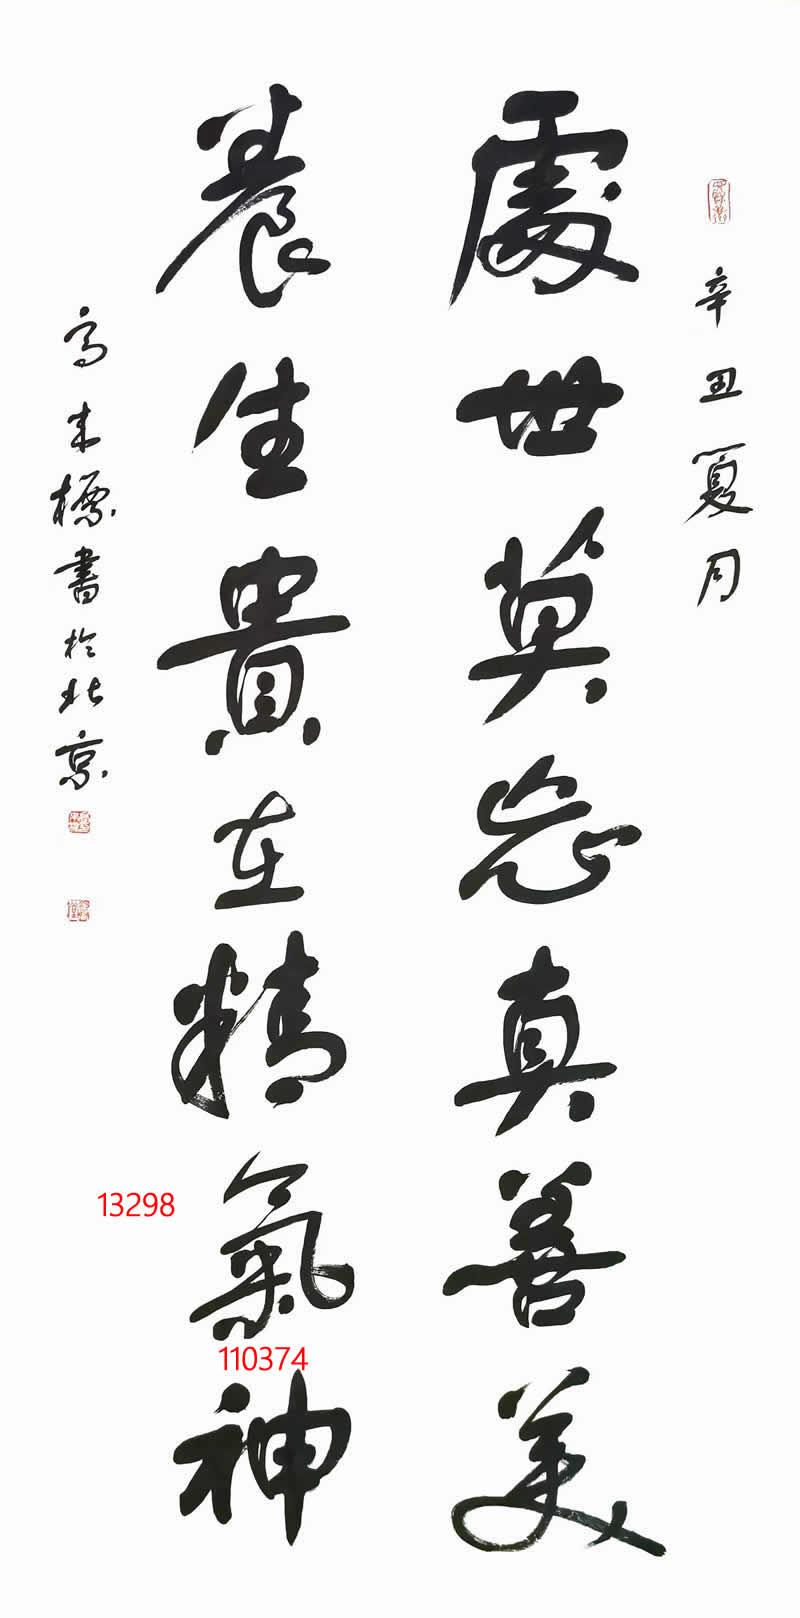 辛丑夏月
處世莫忘真善美
養生貴在精氣神
高來標書於北京
13298
110374